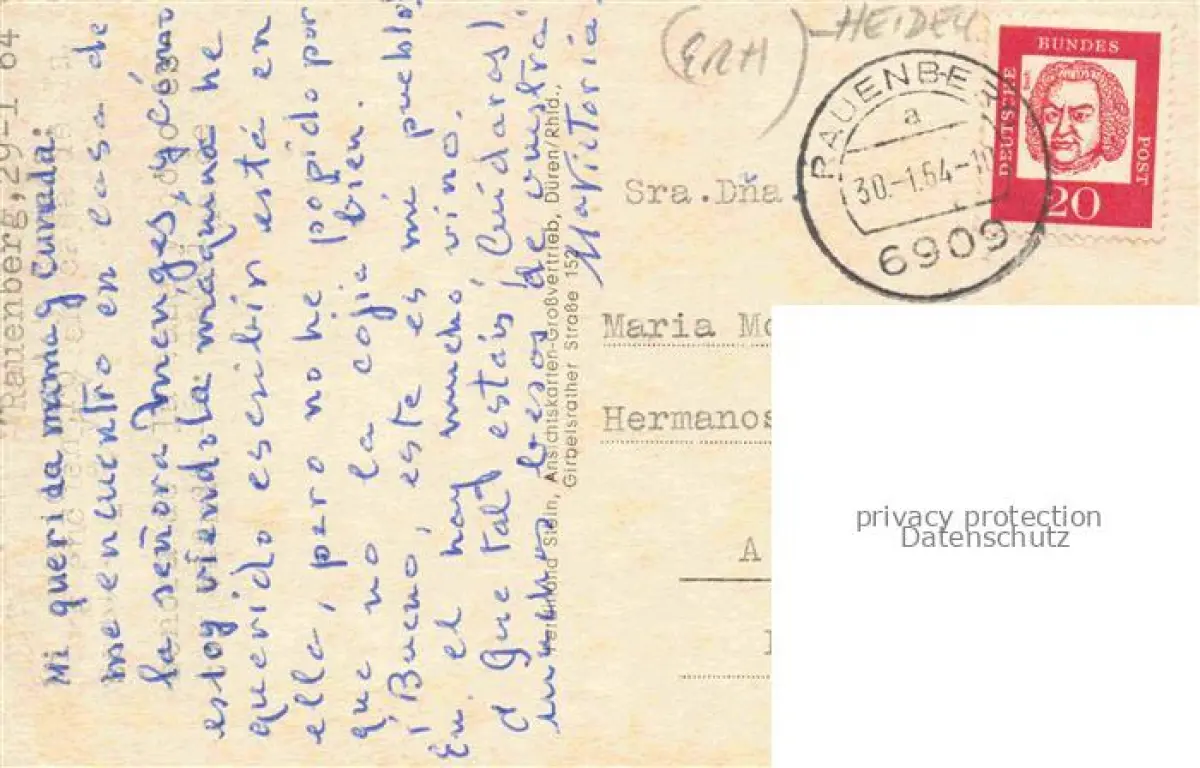 Rauenberg, 29-1-64
Mi querida mama y cuñada:
me encuentro en casa de
la señora Menges, y cómo
estoy viendo la máquina he
querido escribir está en
ella, pero no he podido por
que no la cojia bien.
¡Bueno, este es mi pueblo,
En el hay mucho vino.
¿Que tal estáis, Cuidaros!
muchos besos de vuestra
Mª Victoria
Ferdinand Stein, Ansichtskarten-Großvertrieb, Düren/Rhld.,
Girbelsrather Straße 152
(ERH) - HEIDEL
RAUENBERG
a
30.-1.64-10
6909
DEUTSCHE
BUNDES
POST
20
Sra.Dña.
Maria
Hermanos
A
privacy protection
Datenschutz